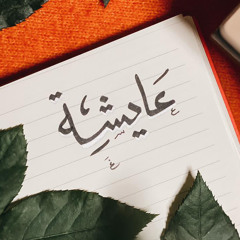 عَايِشِة